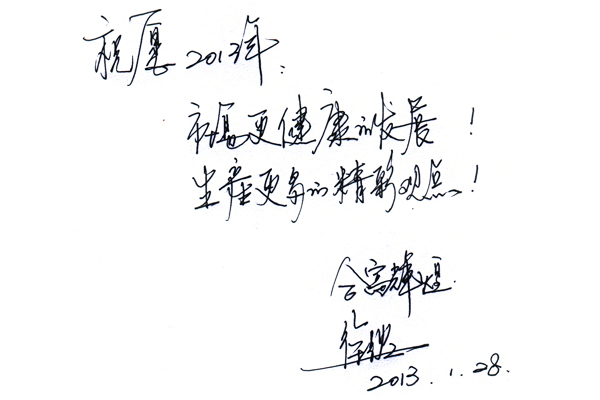 祝愿2013年:
更健康的发展!
生产更多的精彩观点!
合富辉煌
徐
2013.1.28.